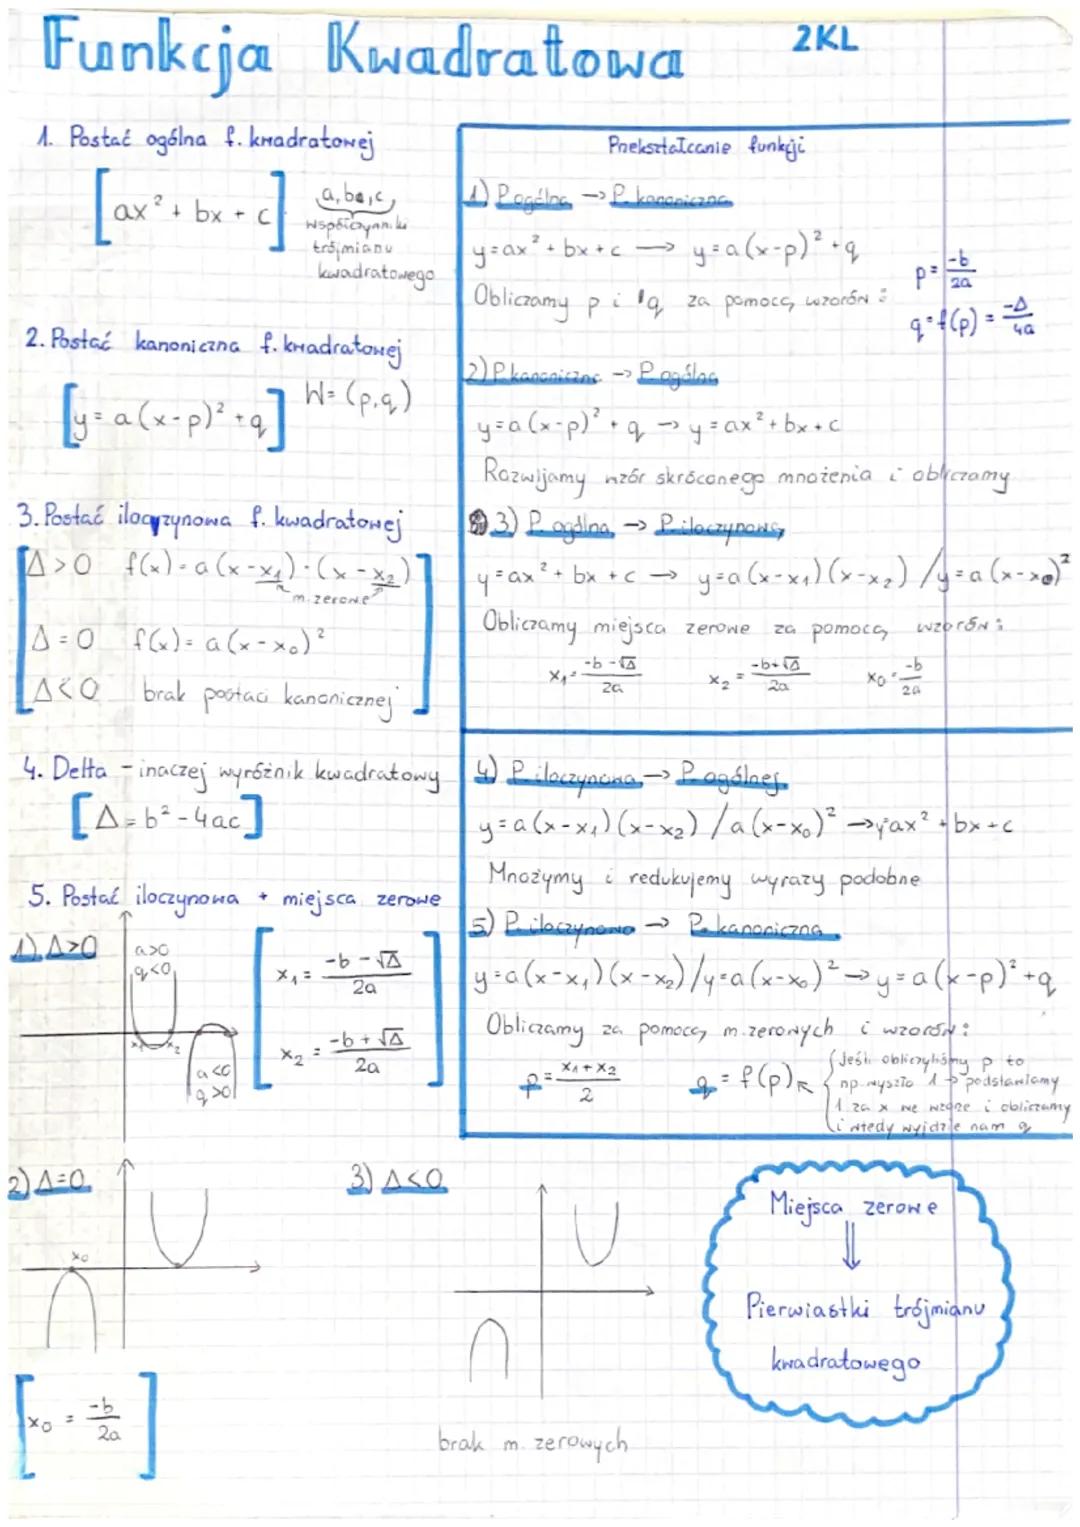 Funkcja Kwadratowa
2KL
1. Postać ogólna f. kwadratowej
[ax² + bx + c]
a, b, c,
współczynniki
trójmianu
kwadratowego
2. Postać kanoniczna f. kwadratowej
[y = a(x-p)² + q] W = (p,q)
3. Postać iloczynowa f. kwadratowej
Δ>0 f(x) = a(x-x₁)·(x-x₂)
m. zerowe
Δ=0 f(x) = a(x-x₀)²
Δ<0 brak postaci kanonicznej
4. Delta - inaczej wyróżnik kwadratowy
[Δ = b² - 4ac]
5. Postać iloczynowa + miejsca zerowe
1) Δ>0
a>0
q<0
x₁ x₂
a<0
q>0
x₁ = (-b - √Δ)/2a
x₂ = (-b + √Δ)/2a
Przekształcanie funkcji
1) P. ogólna → P. kanoniczna
y = ax² + bx + c → y = a(x-p)² + q
Obliczamy p i q za pomocą wzorów:
p = -b/2a
q = f(p) = -Δ/4a
2) P. kanoniczna → P. ogólna
y = a(x-p)² + q → y = ax² + bx + c
Rozwijamy wzór skróconego mnożenia i obliczamy
3) P. ogólna → P. iloczynowa
y = ax² + bx + c → y = a(x-x₁)(x-x₂) / y = a(x-x₀)²
Obliczamy miejsca zerowe za pomocą wzorów:
x₁ = (-b - √Δ)/2a x₂ = (-b + √Δ)/2a x₀ = -b/2a
4) P. iloczynowa → P. ogólnej
y = a(x-x₁)(x-x₂) / a(x-x₀)² → y = ax² + bx + c
Mnożymy i redukujemy wyrazy podobne
5) P. iloczynowa → P. kanoniczna
y = a(x-x₁)(x-x₂) / y = a(x-x₀)² → y = a(x-p)² + q
Obliczamy za pomocą m. zerowych i wzorów:
p = (x₁+x₂)/2
q = f(p)
Jeśli obliczyliśmy p to
np. wyszło 1 → podstawiamy
1 za x we wzorze i obliczamy
i wtedy wyjdzie nam q
2) Δ=0
x₀
x₀ = -b/2a
3) Δ<0
brak m. zerowych
Miejsca zerowe
⇓
Pierwiastki trójmianu
kwadratowego